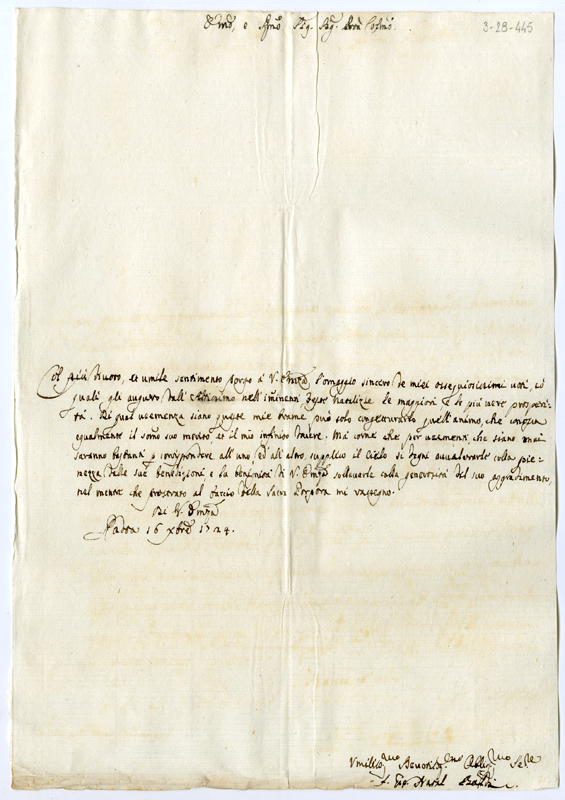 Em.mo, e Rev.mo Sig. Sig. Pron Col.mo
3-28-445
Col più divoto, et umile sentimento porgo a V. Em.za l'omaggio sincero de miei ossequiosissimi voti, co
quali gli auguro dall'Altissimo nell'imminenti Feste Natalizie le maggiori e le più vere prosperi-
tà. Di qual veemenza siano queste mie brame può solo congetturarlo quell'animo, che
egualmente il sommo suo merito et il mio infinito dovere. Ma come che per veementi che siano mai
saranno bastanti a corrispondere all'uno ed all'altro, supplico il Cielo si degni avvalorarle colla pie-
nezza delle sue benedizioni e la benignità di V. Em.za sollevarle colla generosità del suo aggradimento,
nel mentre che prostrato al baccio della Sacra Porpora mi rassegno.
Di V. Em.za
Padoa 16 Xbre 1724.
Umiliss.mo Devotiss.mo Obblig.mo Se.re